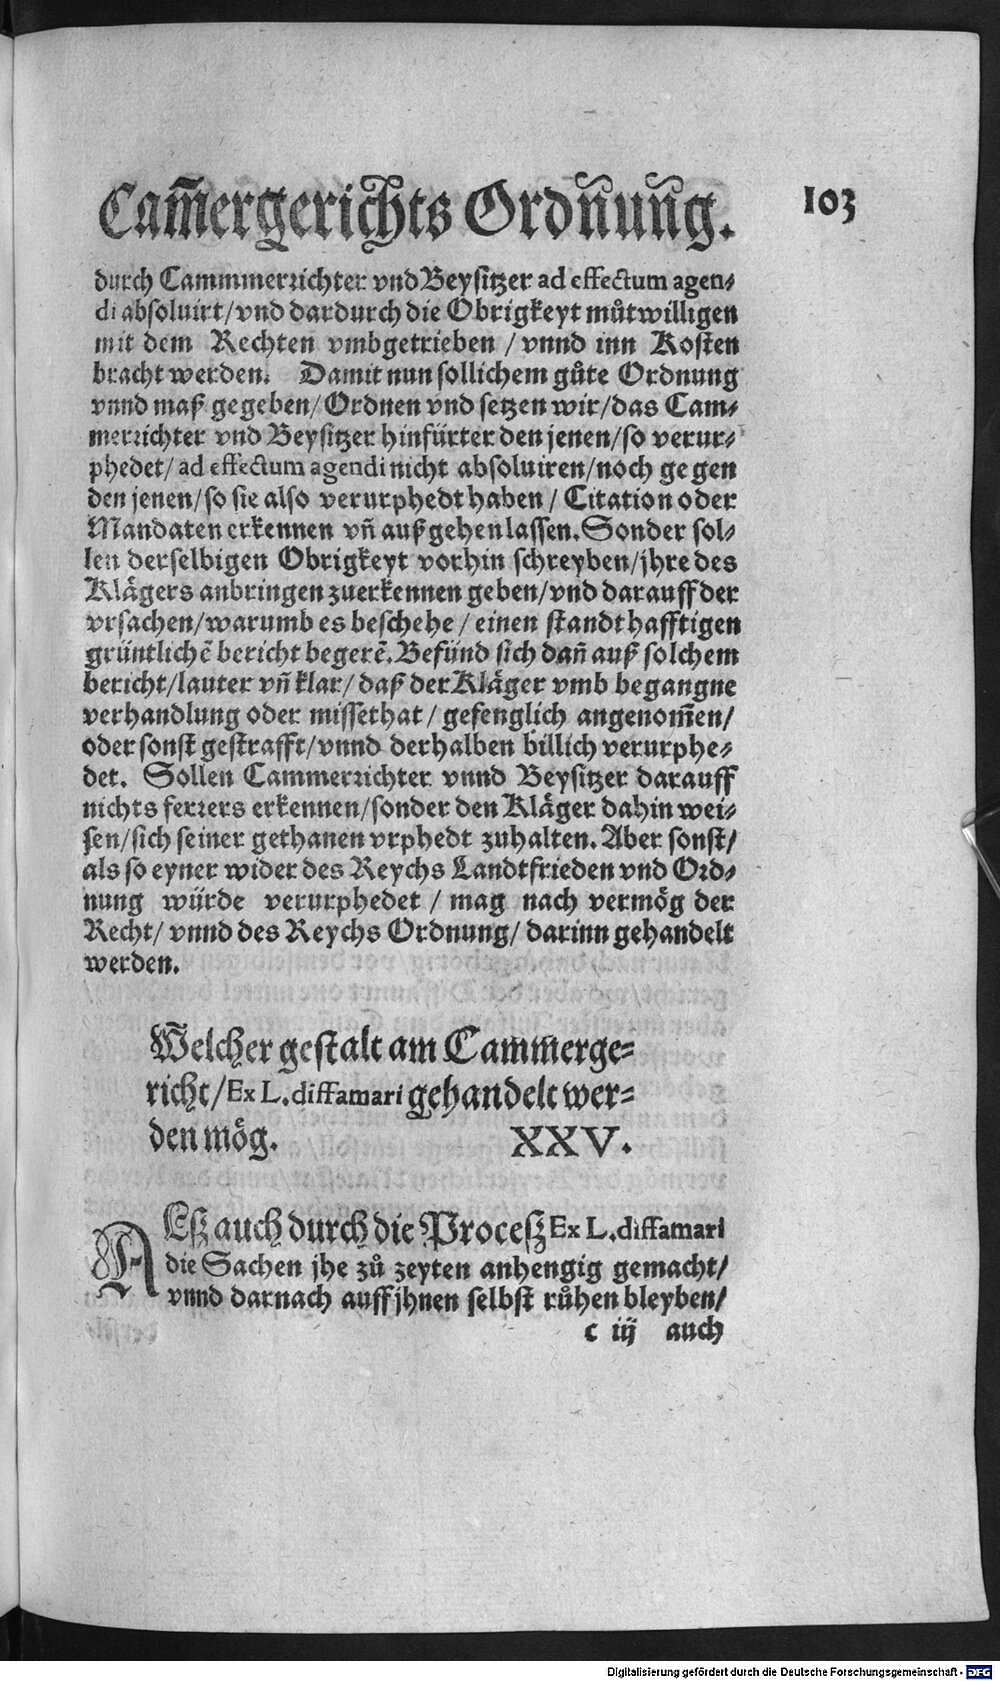 Cam̃ergerichts Ordnung. 103
durch Cammmerrichter vnd Beysitzer ad effectum agen-
di absoluirt/vnd dardurch die Obrigkeyt můtwilligen
mit dem Rechten vmbgetrieben / vnnd inn Kosten
bracht werden. Damit nun sollichem gůte Ordnung
vnnd maß gegeben/Ordnen vnd setzen wir/das Cam-
merrichter vnd Beysitzer hinfürter den jenen/so verur-
phedet/ad effectum agendi nicht absoluiren/noch gegen
den jenen/so sie also verurphedt haben/ Citation oder
Mandaten erkennen vñ außgehen lassen. Sonder sol-
len derselbigen Obrigkeyt vorhin schreyben/jhre des
Klägers anbringen zuerkennen geben/vnd darauff der
vrsachen/warumb es beschehe/ einen standthafftigen
grüntlichẽ bericht begerẽ. Befünd sich dañ auß solchem
bericht/lauter vñ klar/ daß der Kläger vmb begangne
verhandlung oder missethat/ gefenglich angenom̃en/
oder sonst gestrafft/vnnd derhalben billich verurphe-
det. Sollen Cammerrichter vnnd Beysitzer darauff
nichts ferrers erkennen/sonder den Kläger dahin wei-
sen/sich seiner gethanen vrphedt zuhalten. Aber sonst/
als so eyner wider des Reychs Landtfrieden vnd Ord-
nung würde verurphedet / mag nach vermög der
Recht/ vnnd des Reychs Ordnung/ darinn gehandelt
werden.
Welcher gestalt am Cammerge-
richt/Ex L. diffamari gehandelt wer-
den mög. XXV.
ALß auch durch die Proceß Ex L. diffamari
die Sachen jhe zů zeyten anhengig gemacht/
vnnd darnach auff jhnen selbst růhen bleyben/
c iij auch
Digitalisierung gefördert durch die Deutsche Forschungsgemeinschaft - DFG